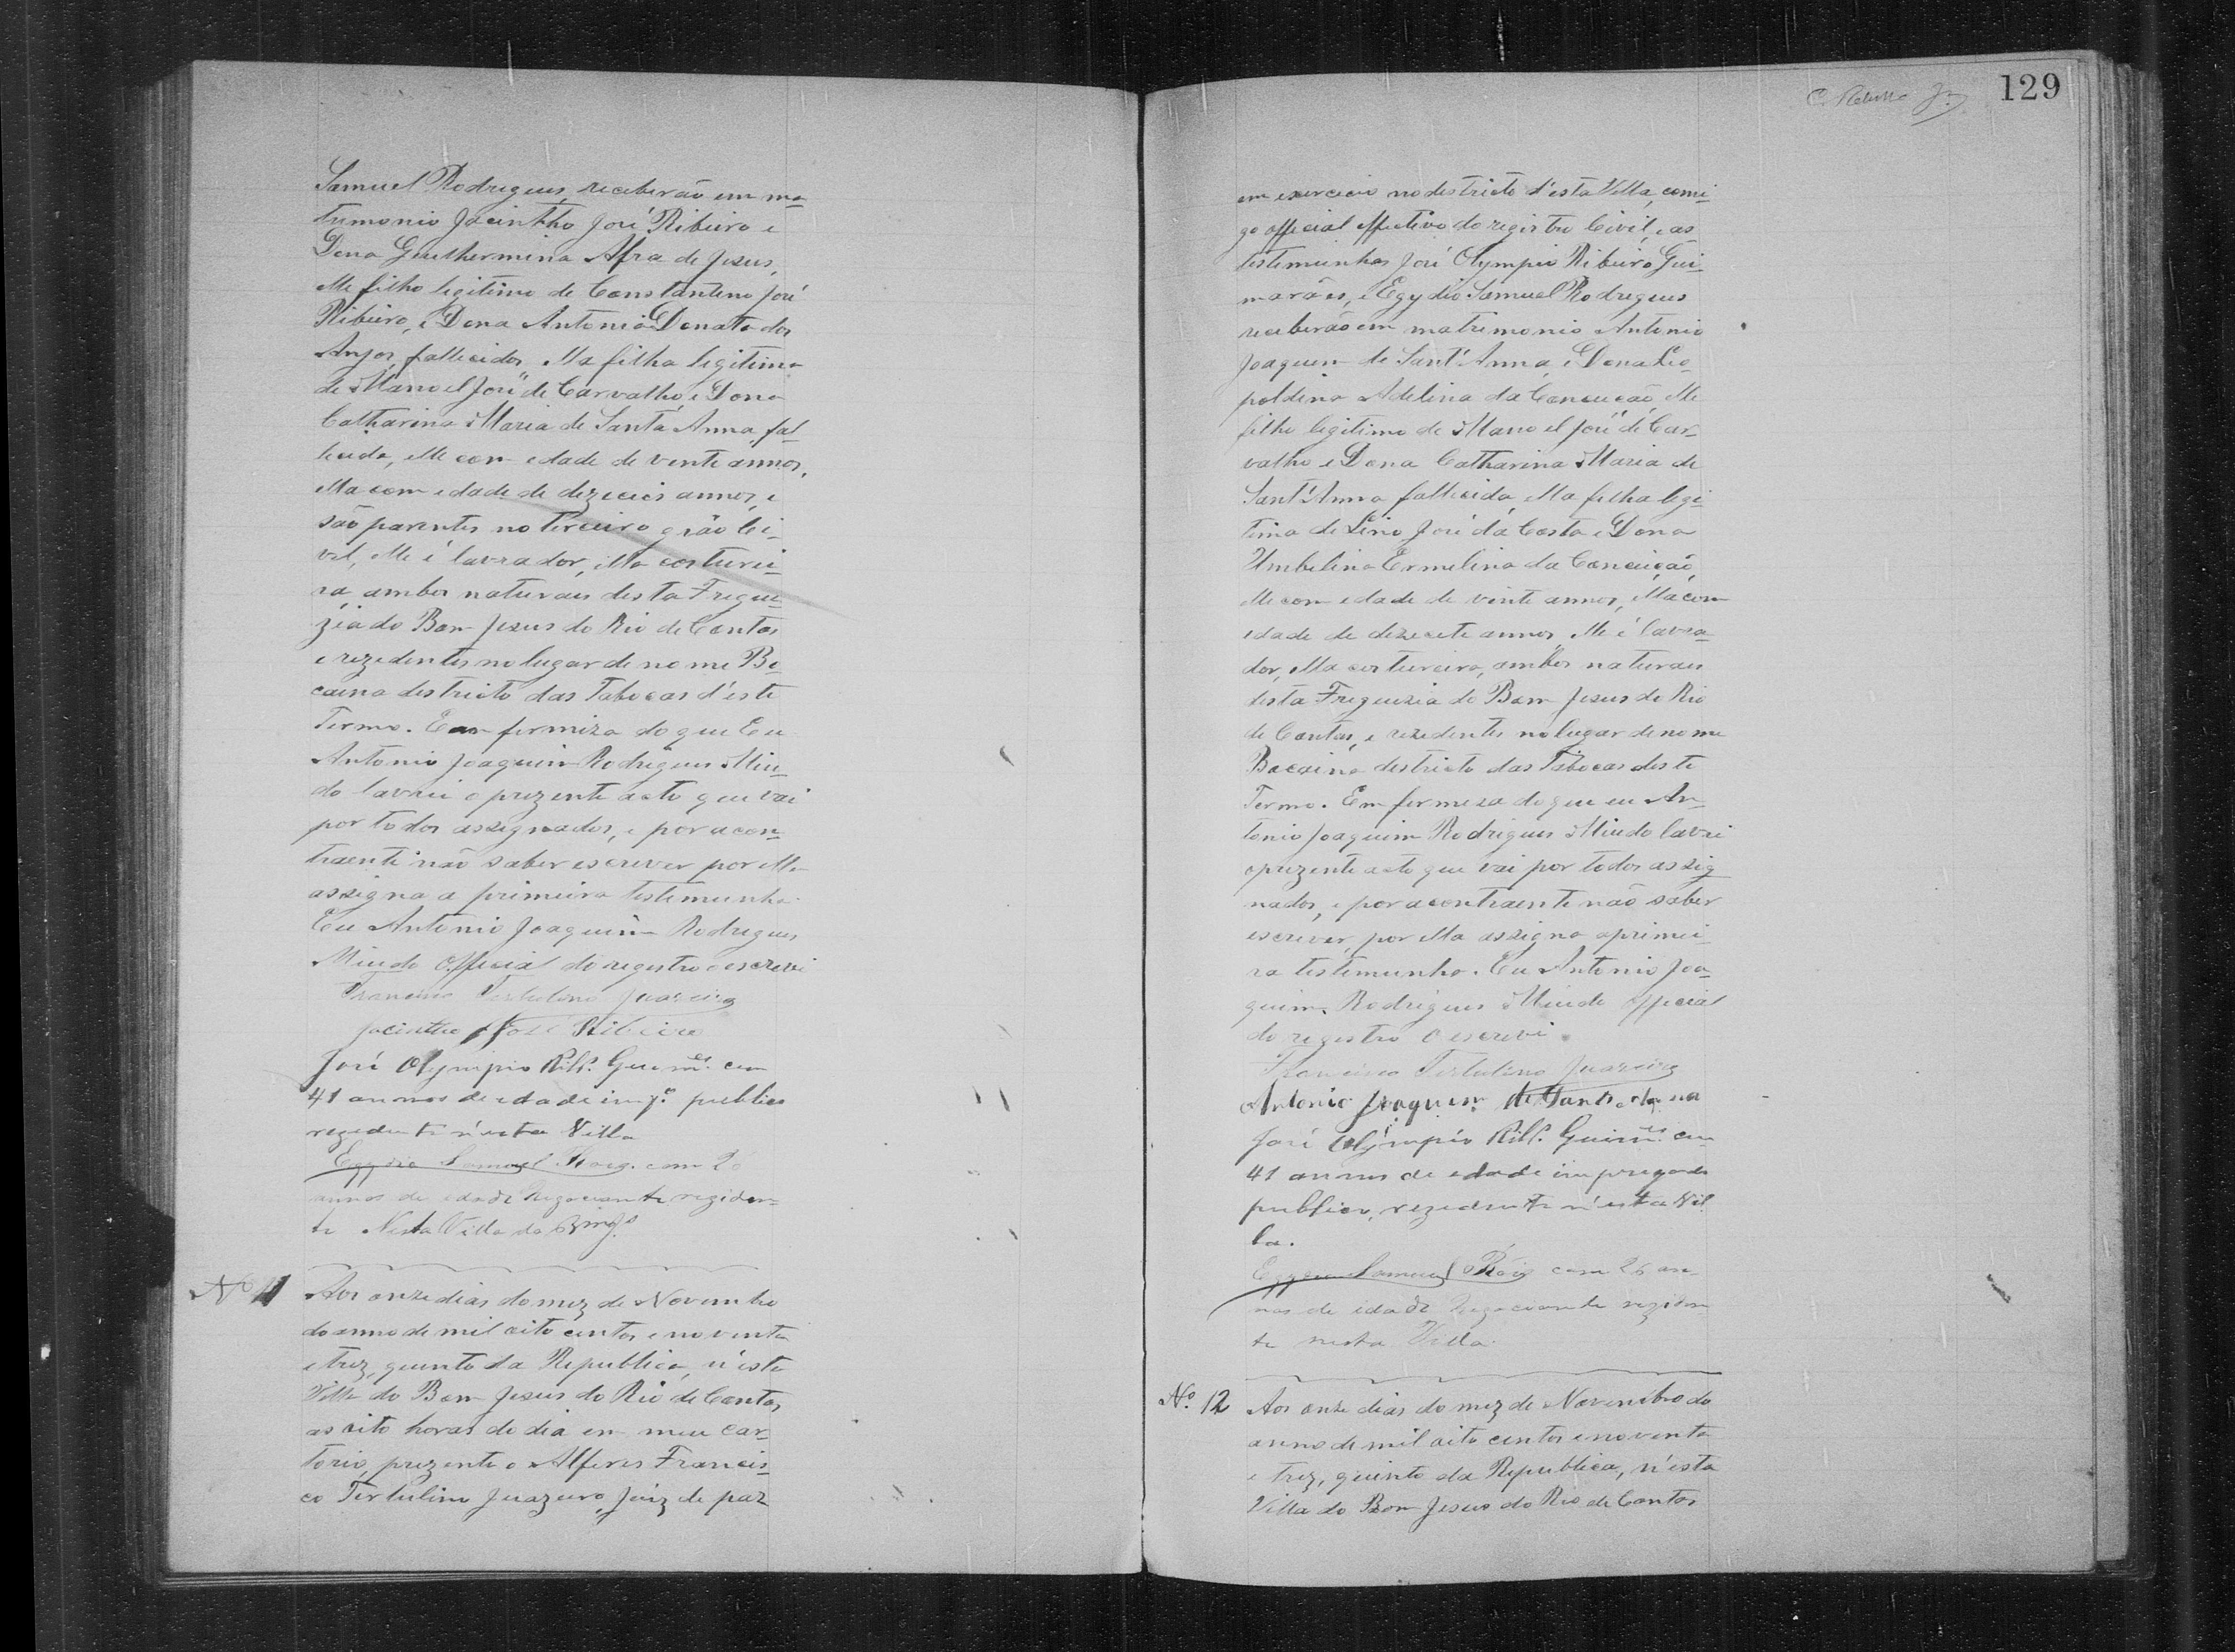 Samuel Rodrigues, receberão em ma-
trimonio Jacintho José Ribeiro e
Dona Guilhermina Afra de Jesus,
elle filho legitimo de Constantino José
Ribeiro, e Dona Antonia Donata dos
Anjos, fallecidos, ella filha legitima
de Manoel José de Carvalho e Dona
Catharina Maria de Santa Anna, fal-
lecida, elle com edade de vinte annos,
ella com edade de dezeceis annos, e
são parentes no terceiro grão Ci-
vil, elle é lavrador, ella costurei-
ra, ambos naturaes desta Fregue-
zia do Bom Jesus do Rio de Contas
e rezedentes no lugar de nome Bo-
caina destricto das Tabocas d'este
Termo. Em fermiza do que Eu
Antonio Joaquim Rodrigues Miudo
lavrei o prezente acto que vai
por todos assignados, e por a con-
traente não saber escrever por ella
assigna a primeira testemunha.
Eu Antonio Joaquim Rodrigues
Miudo Official do registro o escrevi
Francisco Tertulino Juazeiro
Jacintho José Ribeiro
José Olympio Ribr.º Guim.es com
41 annos de edade imp.º publico
rezedente n'esta Villa
Egydio Samuel Roiz. com 26
annos de edade Negociante reziden-
te Nesta Villa do
Nº 11 Aos onze dias do mez de Novembro
do anno de mil oito centos e noventa
e trez, quinto da Republica, n'esta
Villa do Bom Jesus do Rio de Contas
as oito horas do dia em meu Car-
torio, prezente o Alferes Francis-
co Tertulino Juazeiro, Juiz de paz
129
em exercicio no destricto d'esta Villa, comi-
go official effectivo do registro Civil, e as
testemunhas José Olympio Ribeiro Gui-
marães, e Egydio Samuel Rodrigues
receberão em matrimonio Antonio
Joaquim de Sant'Anna, e Dona Leo-
poldina Adelina da Conceição, elle
filho legitimo de Manoel José de Car-
valho e Dona Catharina Maria de
Sant'Anna fallecida, ella filha legi-
tima de Lino José da Costa e Dona
Umbelina Ermelina da Conceição,
elle com edade de vinte annos, ella com
edade de dezecete annos, elle é lavra-
dor, ella costureira, ambos naturaes
desta Freguezia do Bom Jesus do Rio
de Contas, e rezedentes no lugar de nome
Bocaina destricto das Tabocas deste
Termo. Em fermeza do que eu An-
tonio Joaquim Rodrigues Miudo lavrei
o prezente acto que vai por todos assig-
nados, e por a contraente não saber
escrever, por ella assigna a primei-
ra testemunha. Eu Antonio Joa-
quim Rodrigues Miudo Official
do registro o escrevi.
Francisco Tertulino Juazeiro
Antonio Joaquim de Santa Anna
José Olympio Ribr.º Guim.es com
41 annos de edade impregado
publico, rezedente n'esta Vil
la.
Egydio Samuel Roiz com 26 an-
nos de idade Negociante reziden-
te nesta Villa.
Nº 12 Aos onze dias do mez de Novembro do
anno de mil oito centos e noventa
e trez, quinto da Republica, n'esta
Villa do Bom Jesus do Rio de Contas